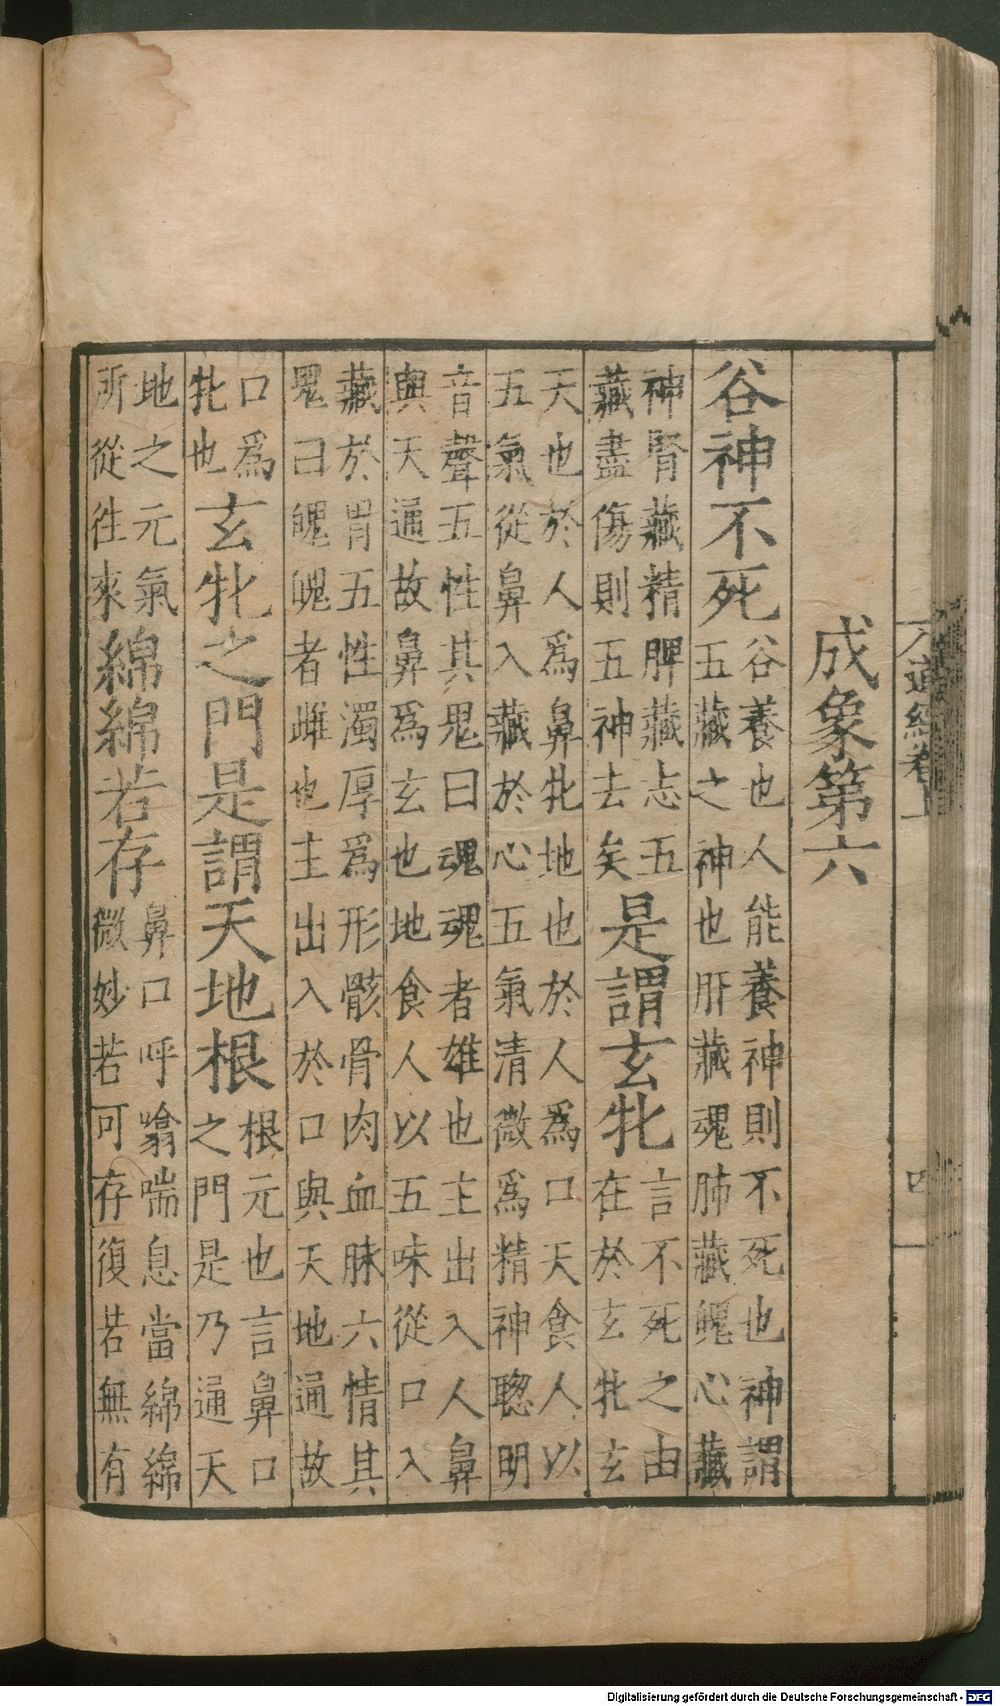 成象第六
谷神不死谷養也人能養神則不死也神謂
五藏之神也肝藏魂肺藏魄心藏
神腎藏精脾藏志五
藏盡傷則五神去矣是謂玄牝言不死之由
在於玄牝玄
天也於人為鼻牝地也於人為口天食人以
五氣從鼻入藏於心五氣清微為精神聦明
音聲五性其鬼曰魂魂者雄也主出入人鼻
與天通故鼻為玄也地食人以五味從口入
藏於胃五性濁厚為形骸骨肉血脉六情其
鬼曰魄魄者雌也主出入於口與天地通故
口為
牝也玄牝之門是謂天地根根元也言鼻口
之門是乃通天
地之元氣
所從往來綿綿若存鼻口呼噏喘息當綿綿
微妙若可存復若無有
道經卷上
四
Digitalisierung gefördert durch die Deutsche Forschungsgemeinschaft - DFG